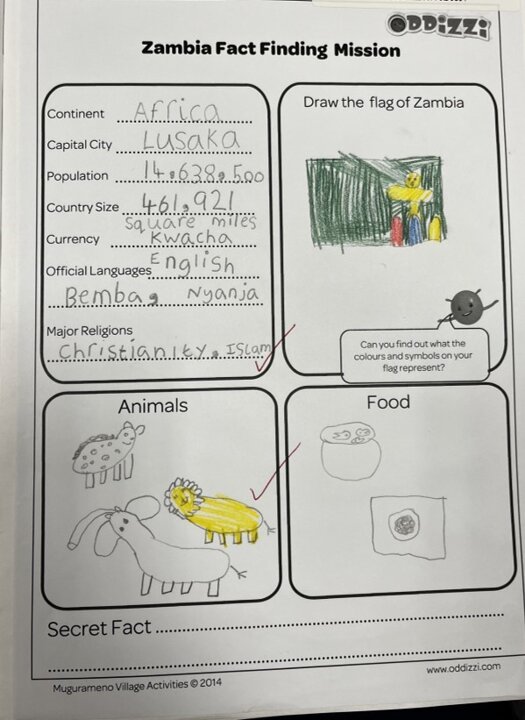 ODDiZZi
Zambia Fact Finding Mission
Continent Africa
Capital City Lusaka
Population 14,638,500
Country Size 461,921
square miles
Currency Kwacha
Official Languages English
Bemba, Nyanja
Major Religions
Christianity, Islam
Draw the flag of Zambia
Can you find out what the
colours and symbols on your
flag represent?
Animals
Food
Secret Fact
Mugurameno Village Activities © 2014
www.oddizzi.com